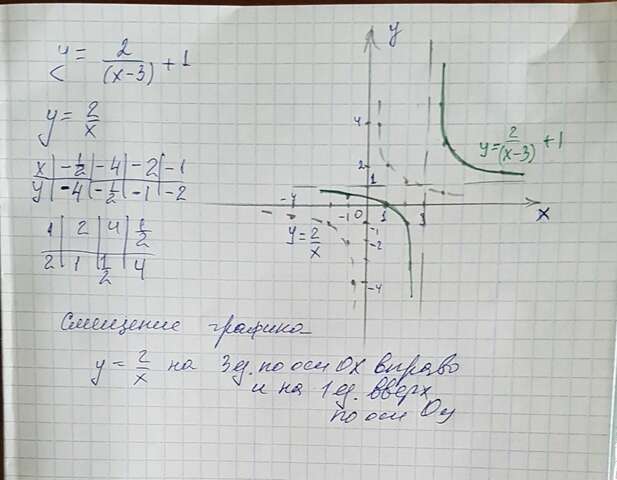 y = 2/(x-3) + 1
y = 2/x
x | -1/2 | -4 | -2 | -1
y | -4 | -1/2 | -1 | -2
1 | 2 | 4 | 1/2
2 | 1 | 1/2 | 4
y
4
2
1
-4
-1 0 1 3
x
-1
-2
-4
y = 2/x
y = 2/(x-3) + 1
Смещение графика
y = 2/x на 3 ед. по оси Ox вправо
и на 1 ед. вверх
по оси Oy